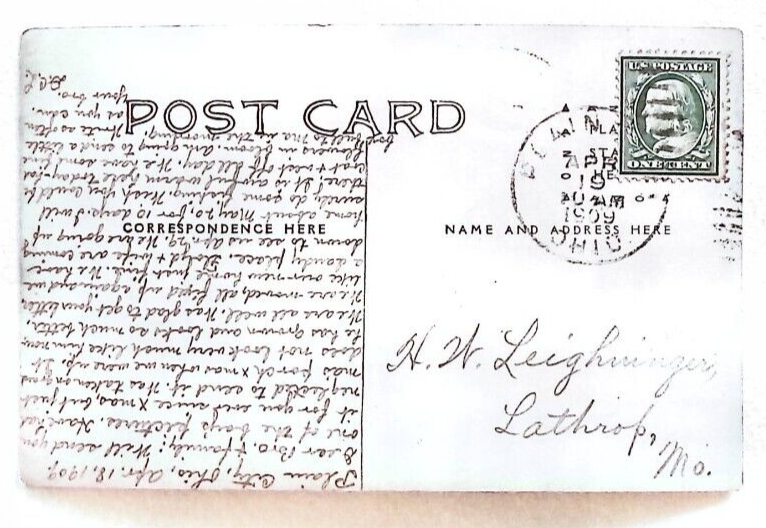 POST CARD
CORRESPONDENCE HERE
NAME AND ADDRESS HERE
U.S. POSTAGE
ONE CENT
PLAIN
APR
19
AM
1909
OHIO
H. W. Leighninger,
Lathrop,
Mo.
Plain City, Ohio, Apr. 18, 1909.
Dear Bro. & family; Will send you
one of the boy's pictures. Have had
it for you ever since Xmas, but just
neglected to send it. Was taken on grand
mas porch Xmas when we were up. It
does not look very much like him now
he has grown and looks so much better.
We are all well. Was glad to get your letter.
We are moved, all fixed up again and we
like our new home just fine. We have
a dandy place. Floyd & wife are coming
down to see us Apr. 29. We are going up
home about May, 20, for 10 days. I will
surely do some fishing. Wish you could be
there! It is awful warm here today-
coat & vest off all day. We have some fine
flowers in bloom. Am going to send a little
box full to ma in the morning.
Write as often
as you can.
Your Bro.